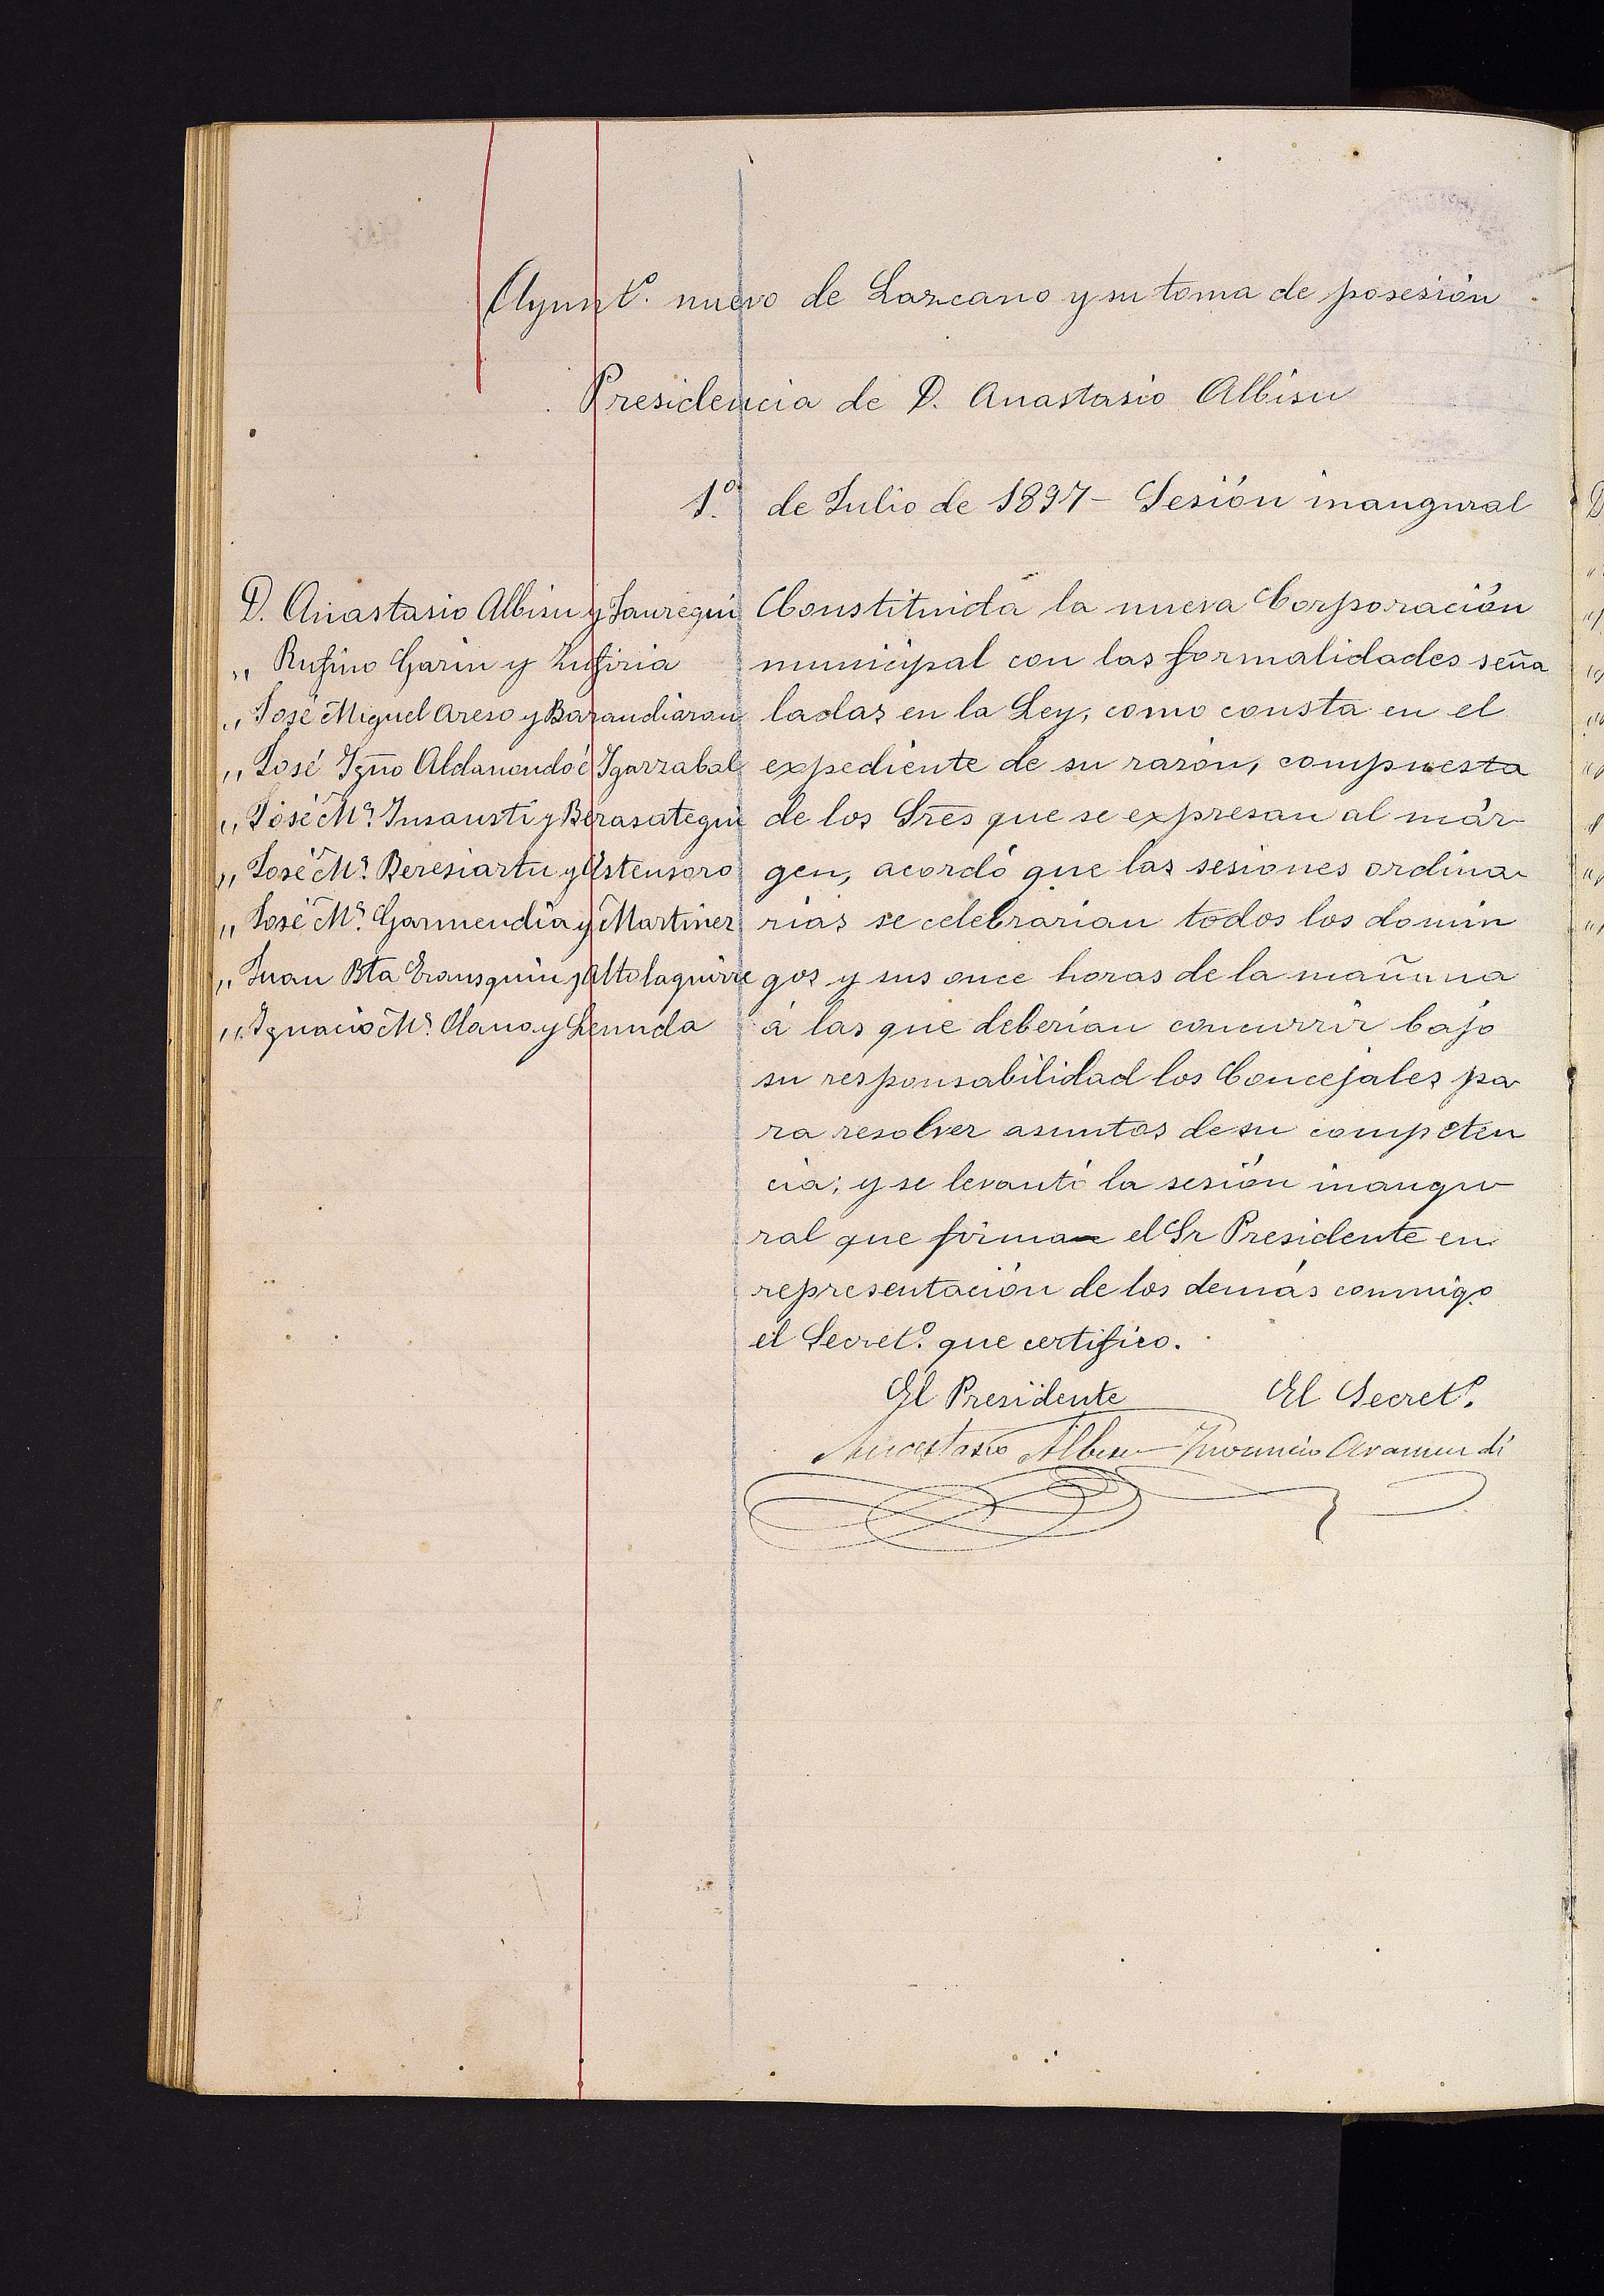 Ayunt.º nuevo de Lazcano y su toma de posesión
Presidencia de D. Anastasio Albisu
1.º de Julio de 1897 - Sesión inaugural
D. Anastasio Albisu y Jauregui
" Rufino Garin y Zufiria
" José Miguel Areso y Barandiaran
" José Igno Aldanondo é Igarzabal
" José Mª. Insausti y Berasategui
" José Mª. Beresiartu y Astensoro
" José Mª. Garmendia y Martinez
" Juan Bta Erausquin y Altolaguirre
" Ignacio Mª. Olano y
Constituida la nueva Corporación
municipal con las formalidades seña
ladas en la Ley, como consta en el
expediente de su razón, compuesta
de los Sres que se expresan al már-
gen, acordó que las sesiones ordina-
rias se celebrarian todos los domin
gos y sus once horas de la mañana
á las que deberian concurrir bajo
su responsabilidad los Concejales pa-
ra resolver asuntos de su competen
cia; y se levantó la sesión inaugu-
ral que firma el Sr Presidente en
representación de los demás conmigo
el Secret.º que certifico.
El Presidente El Secret.º
Anastasio Albisu Aramendi